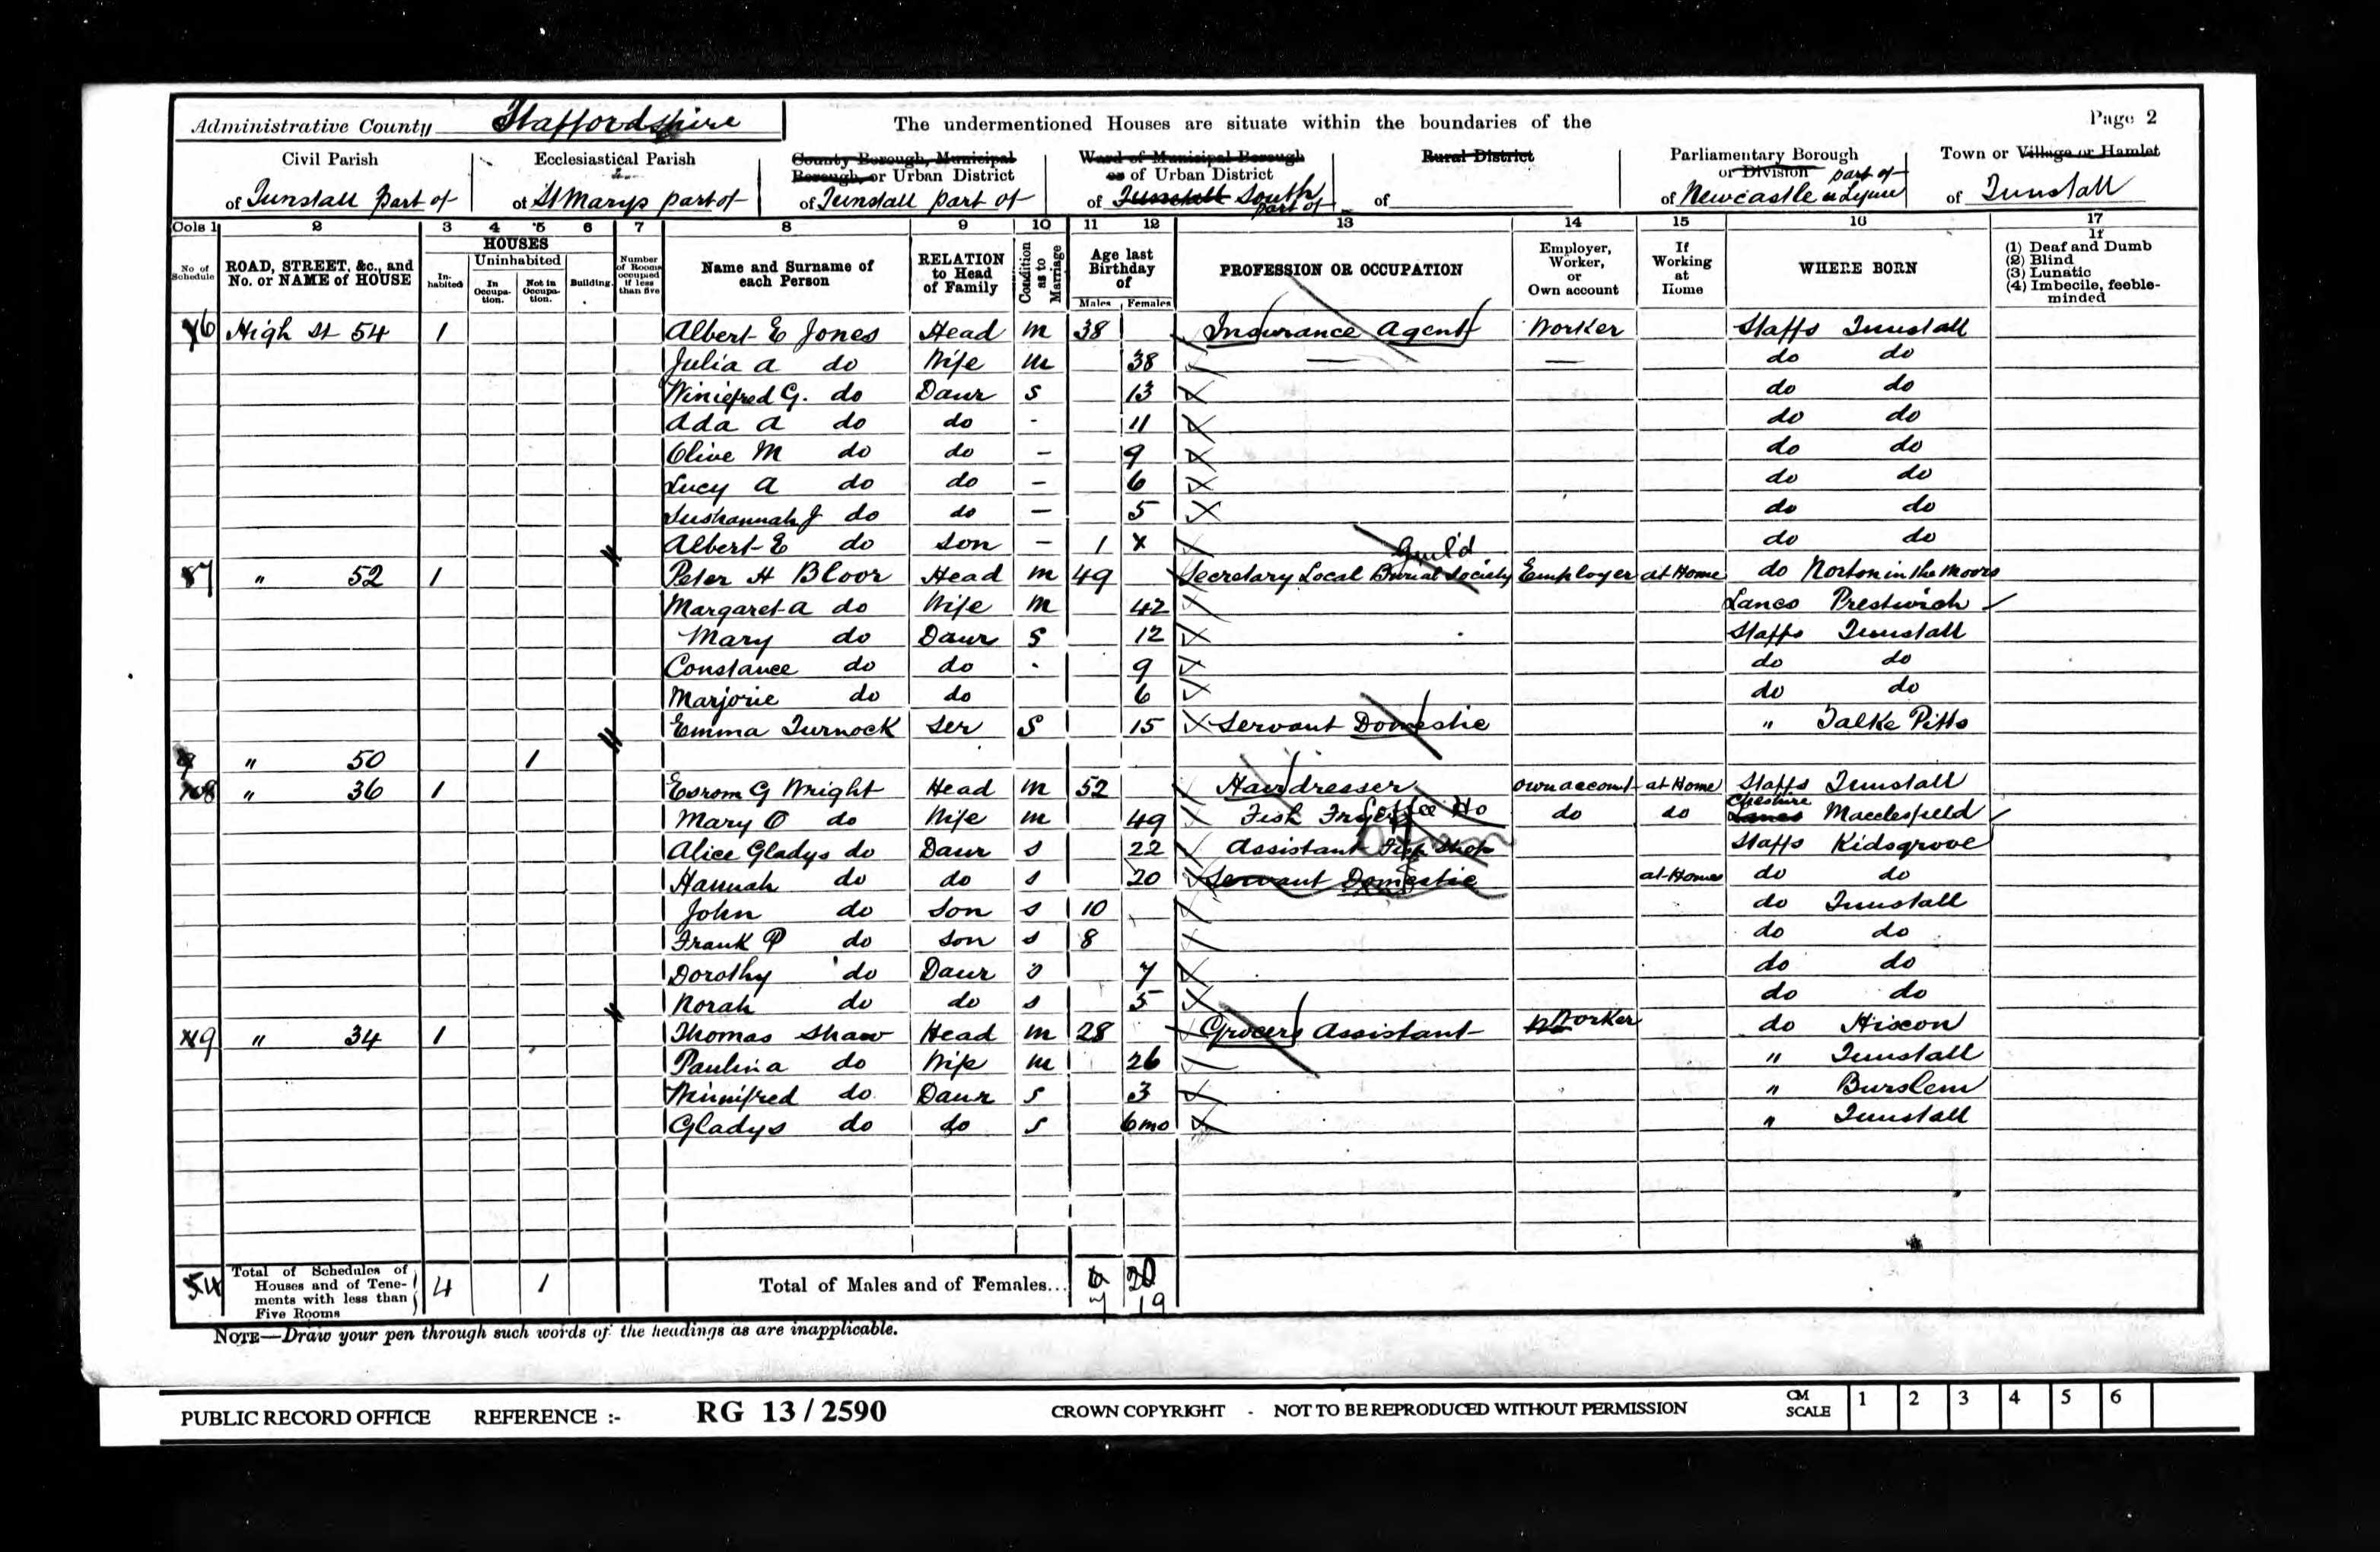 Administrative County Staffordshire
The undermentioned Houses are situate within the boundaries of the
Page 2
Civil Parish
of Tunstall part of
Ecclesiastical Parish
of St Marys part of
County Borough, Municipal
Borough, or Urban District
of Tunstall part of
Ward of Municipal Borough
or of Urban District
of Tunstall South
part of
Rural District
of
Parliamentary Borough
or Division part of
of Newcastle u Lyme
Town or Village or Hamlet
of Tunstall
Cols 1 2 3 4 5 6 7 8 9 10 11 12 13 14 15 16 17
No of Schedule
ROAD, STREET, &c., and No. or NAME of HOUSE
HOUSES
In-habited
Uninhabited
In Occupa-tion.
Not in Occupa-tion.
Building.
Number of Rooms occupied if less than five
Name and Surname of each Person
RELATION to Head of Family
Condition as to Marriage
Age last Birthday of
Males Females
PROFESSION OR OCCUPATION
Employer, Worker, or Own account
If Working at Home
WHERE BORN
If
(1) Deaf and Dumb
(2) Blind
(3) Lunatic
(4) Imbecile, feeble-minded
6 High St 54 1 Albert E Jones Head M 38 Insurance Agent Worker Staffs Tunstall
Julia A do Wife M 38 — — do do
Winiefred G. do Daur S 13 do do
Ada A do do - 11 do do
Olive M do do — 9 do do
Lucy A do do — 6 do do
Sushannah J do do — 5 do do
Albert E do Son — 1 x do do
Guild
7 " 52 1 Peter H Bloor Head M 49 Secretary Local Burial Society Employer at Home do Norton in the Moors
Margaret A do Wife M 42 Lancs Prestwich
Mary do Daur S 12 Staffs Tunstall
Constance do do - 9 do do
Marjorie do do 6 do do
Emma Turnock Ser S 15 Servant Domestic " Talke Pitts
" 50 1
8 " 36 1 Esrom G Wright Head M 52 Hairdresser own account at Home Staffs Tunstall
Mary O do Wife M 49 Fish Fryer Coffee Ho do do Lancs Cheshire Macclesfield
Alice Gladys do Daur S 22 Assistant Fish Shop Staffs Kidsgrove
Hannah do do S 20 Servant Domestic at Home do do
John do Son S 10 do Tunstall
Frank P do Son S 8 do do
Dorothy do Daur S 7 do do
Norah do do S 5 do do
9 " 34 1 Thomas Shaw Head M 28 Grocers Assistant Worker do Hixon
Paulina do Wife M 26 " Tunstall
Winnifred do Daur S 3 " Burslem
Gladys do do S 6mo " Tunstall
54 Total of Schedules of Houses and of Tene-ments with less than Five Rooms 4 1 Total of Males and of Females... 20
7 19
NOTE—Draw your pen through such words of the headings as are inapplicable.
PUBLIC RECORD OFFICE REFERENCE :- RG 13/2590 CROWN COPYRIGHT - NOT TO BE REPRODUCED WITHOUT PERMISSION CM SCALE 1 2 3 4 5 6